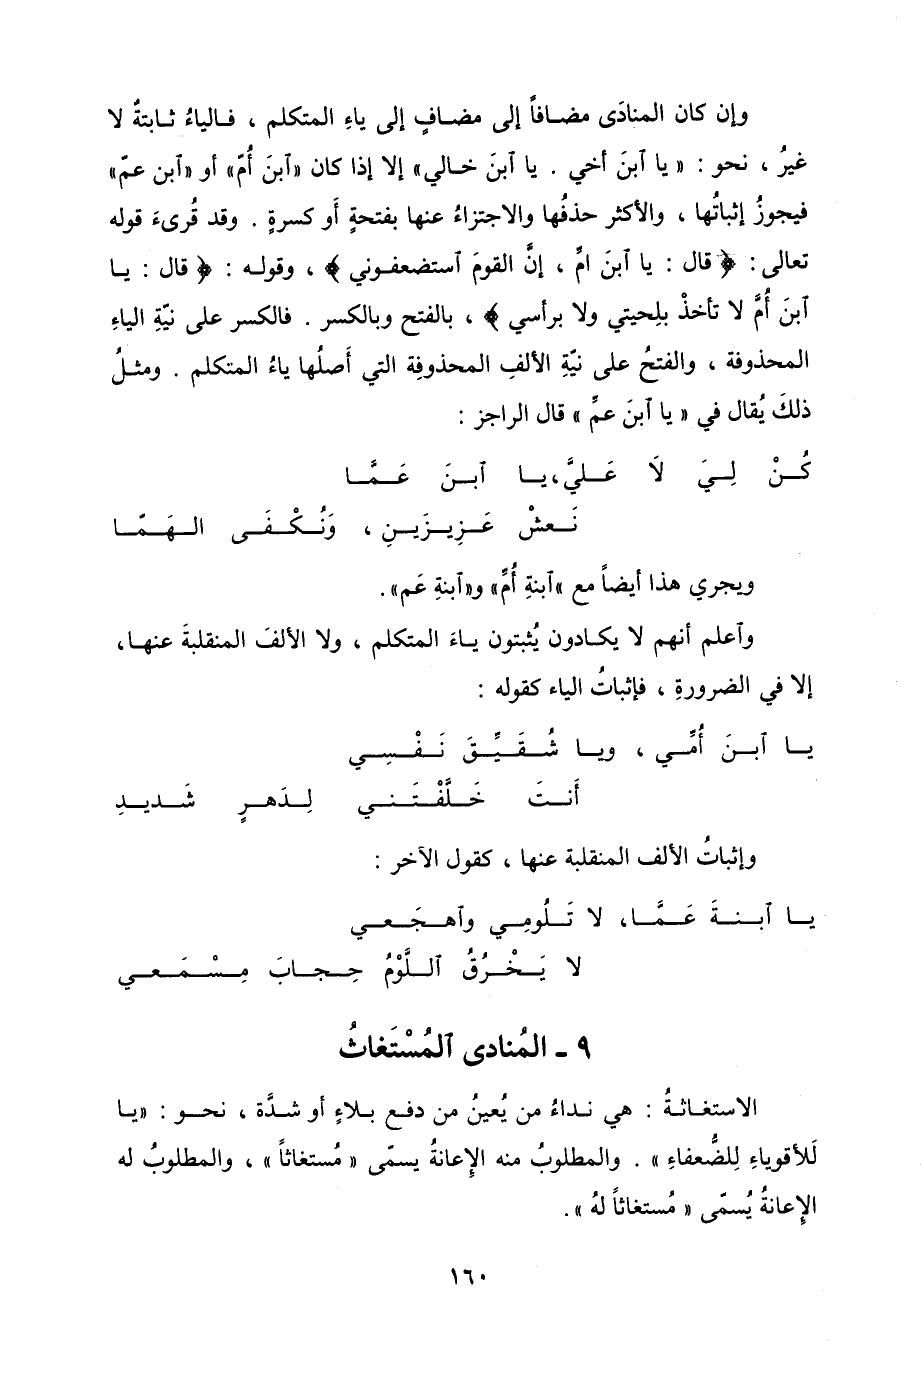 وإن كان المنادَى مضافاً إلى مضافٍ إلى ياءِ المتكلم ، فالياءُ ثابتةٌ لا
غيرُ ، نحو : « يا آبنَ أخي . يا آبنَ خالي» إلا إذا كان «آبنَ أُمّ» أو «آبن عمّ»
فيجوزُ إثباتُها ، والأكثر حذفُها والاجتزاءُ عنها بفتحةٍ أو كسرةٍ . وقد قُرىءَ قوله
تعالى : ﴿ قال : يا آبنَ امَّ ، إنَّ القومَ آستضعفوني ﴾ ، وقوله : ﴿ قال : يا
آبنَ أُمَّ لا تأخذْ بلِحيتي ولا برأسي ﴾ ، بالفتح وبالكسر . فالكسر على نيّةِ الياءِ
المحذوفة ، والفتحُ على نيّةِ الألفِ المحذوفةِ التي أَصلُها ياءُ المتكلم . ومثلُ
ذلكَ يُقال في « يا آبنَ عمِّ » قال الراجز :
كُنْ لِيَ لَا عَليَّ،يا آبنَ عَمَّا
نَعشْ عَزِيزَينِ ، وَنُكْفَى الهَمّا
ويجري هذا أيضاً مع »آبنةِ أُمِّ» و«آبنةِ عَم».
وآعلم أنهم لا يكادون يُثبتون ياءَ المتكلم ، ولا الألفَ المنقلبةَ عنها،
إلا في الضرورةِ ، فإثباتُ الياء كقوله :
يا آبنَ أُمِّي ، ويا شُقَيِّقَ نَفْسِي
أَنتَ خَلَّفْتَني لِدَهرٍ شَديدِ
وإثباتُ الألف المنقلبة عنها ، كقول الآخر :
يا آبنةَ عَمَّا، لا تَلُومِي وآهجَعي
لا يَخْرُقُ آللَّوْمُ حِجابَ مِسْمَعي
٩ - المُنادى آلمُسْتَغاثُ
الاستغاثةُ : هي نداءُ من يُعينُ من دفع بلاءٍ أو شدَّة ، نحو : «يا
لَلأقوياءِ لِلضُّعفاءِ » . والمطلوبُ منه الإعانةُ يسمّى « مُستغاثاً » ، والمطلوبُ له
الإعانةُ يُسمّى « مُستغاثاً لهُ ».
١٦٠